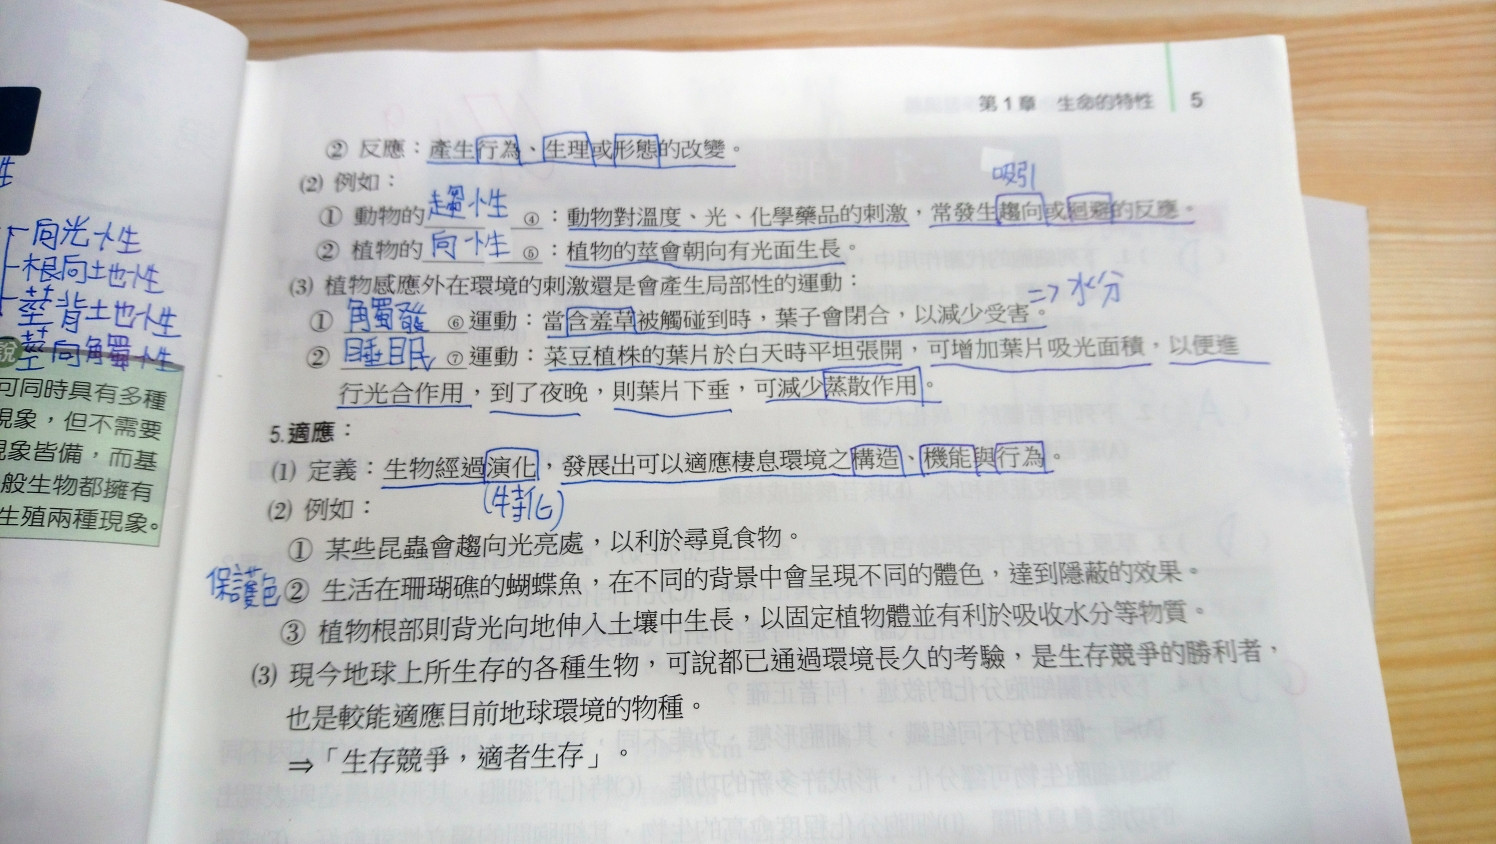 第1章 生命的特性 5
② 反應：產生行為、生理或形態的改變。
(2) 例如：
吸引
① 動物的趨性④：動物對溫度、光、化學藥品的刺激，常發生趨向或迴避的反應。
② 植物的向性⑤：植物的莖會朝向有光面生長。
(3) 植物感應外在環境的刺激還是會產生局部性的運動：
=> 水分
① 觸發⑥運動：當含羞草被觸碰到時，葉子會閉合，以減少受害。
② 睡眠⑦運動：菜豆植株的葉片於白天時平坦張開，可增加葉片吸光面積，以便進
行光合作用，到了夜晚，則葉片下垂，可減少蒸散作用。
5.適應：
(1) 定義：生物經過演化，發展出可以適應棲息環境之構造、機能與行為。
(特化)
(2) 例如：
① 某些昆蟲會趨向光亮處，以利於尋覓食物。
保護色
② 生活在珊瑚礁的蝴蝶魚，在不同的背景中會呈現不同的體色，達到隱蔽的效果。
③ 植物根部則背光向地伸入土壤中生長，以固定植物體並有利於吸收水分等物質。
(3) 現今地球上所生存的各種生物，可說都已通過環境長久的考驗，是生存競爭的勝利者，
也是較能適應目前地球環境的物種。
⇒「生存競爭，適者生存」。
性
向光性
根向土地性
莖背土地性
莖向觸性
說
可同時具有多種
現象，但不需要
現象皆備，而基
般生物都擁有
生殖兩種現象。